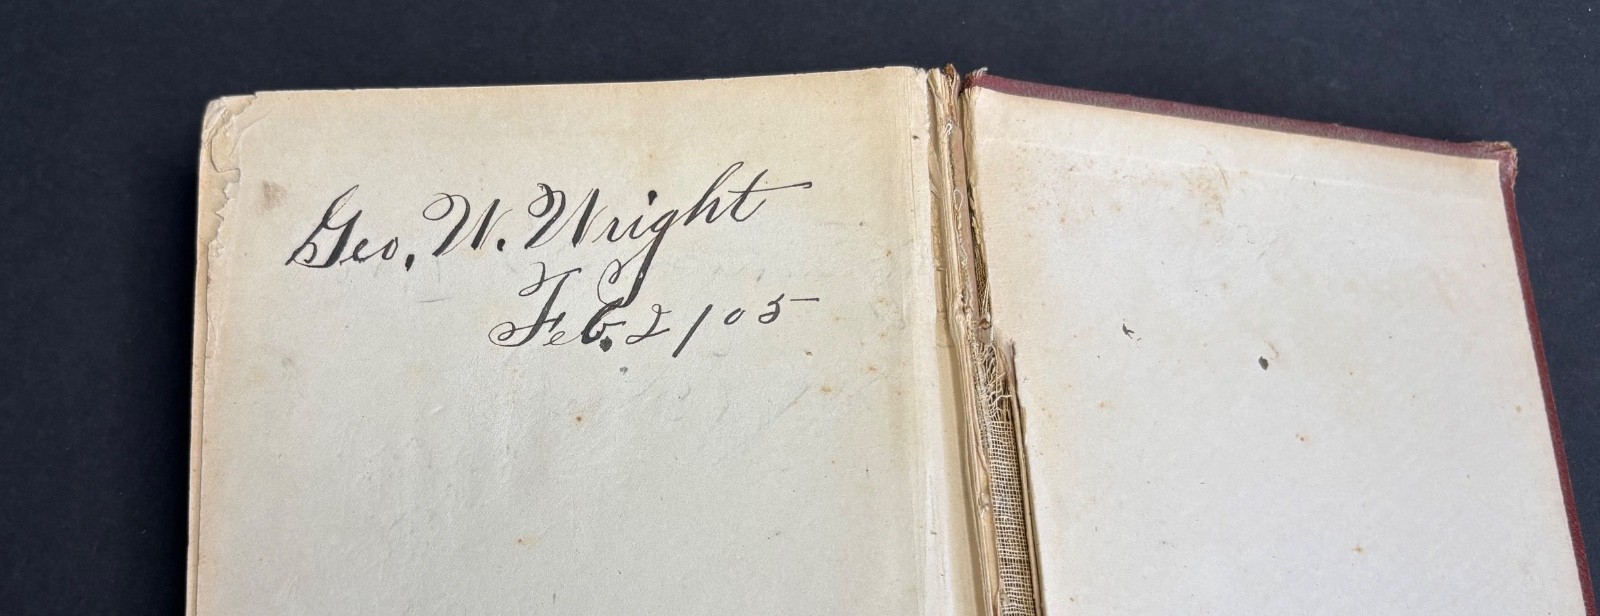 Geo. W. Wright
Feb. 2/05